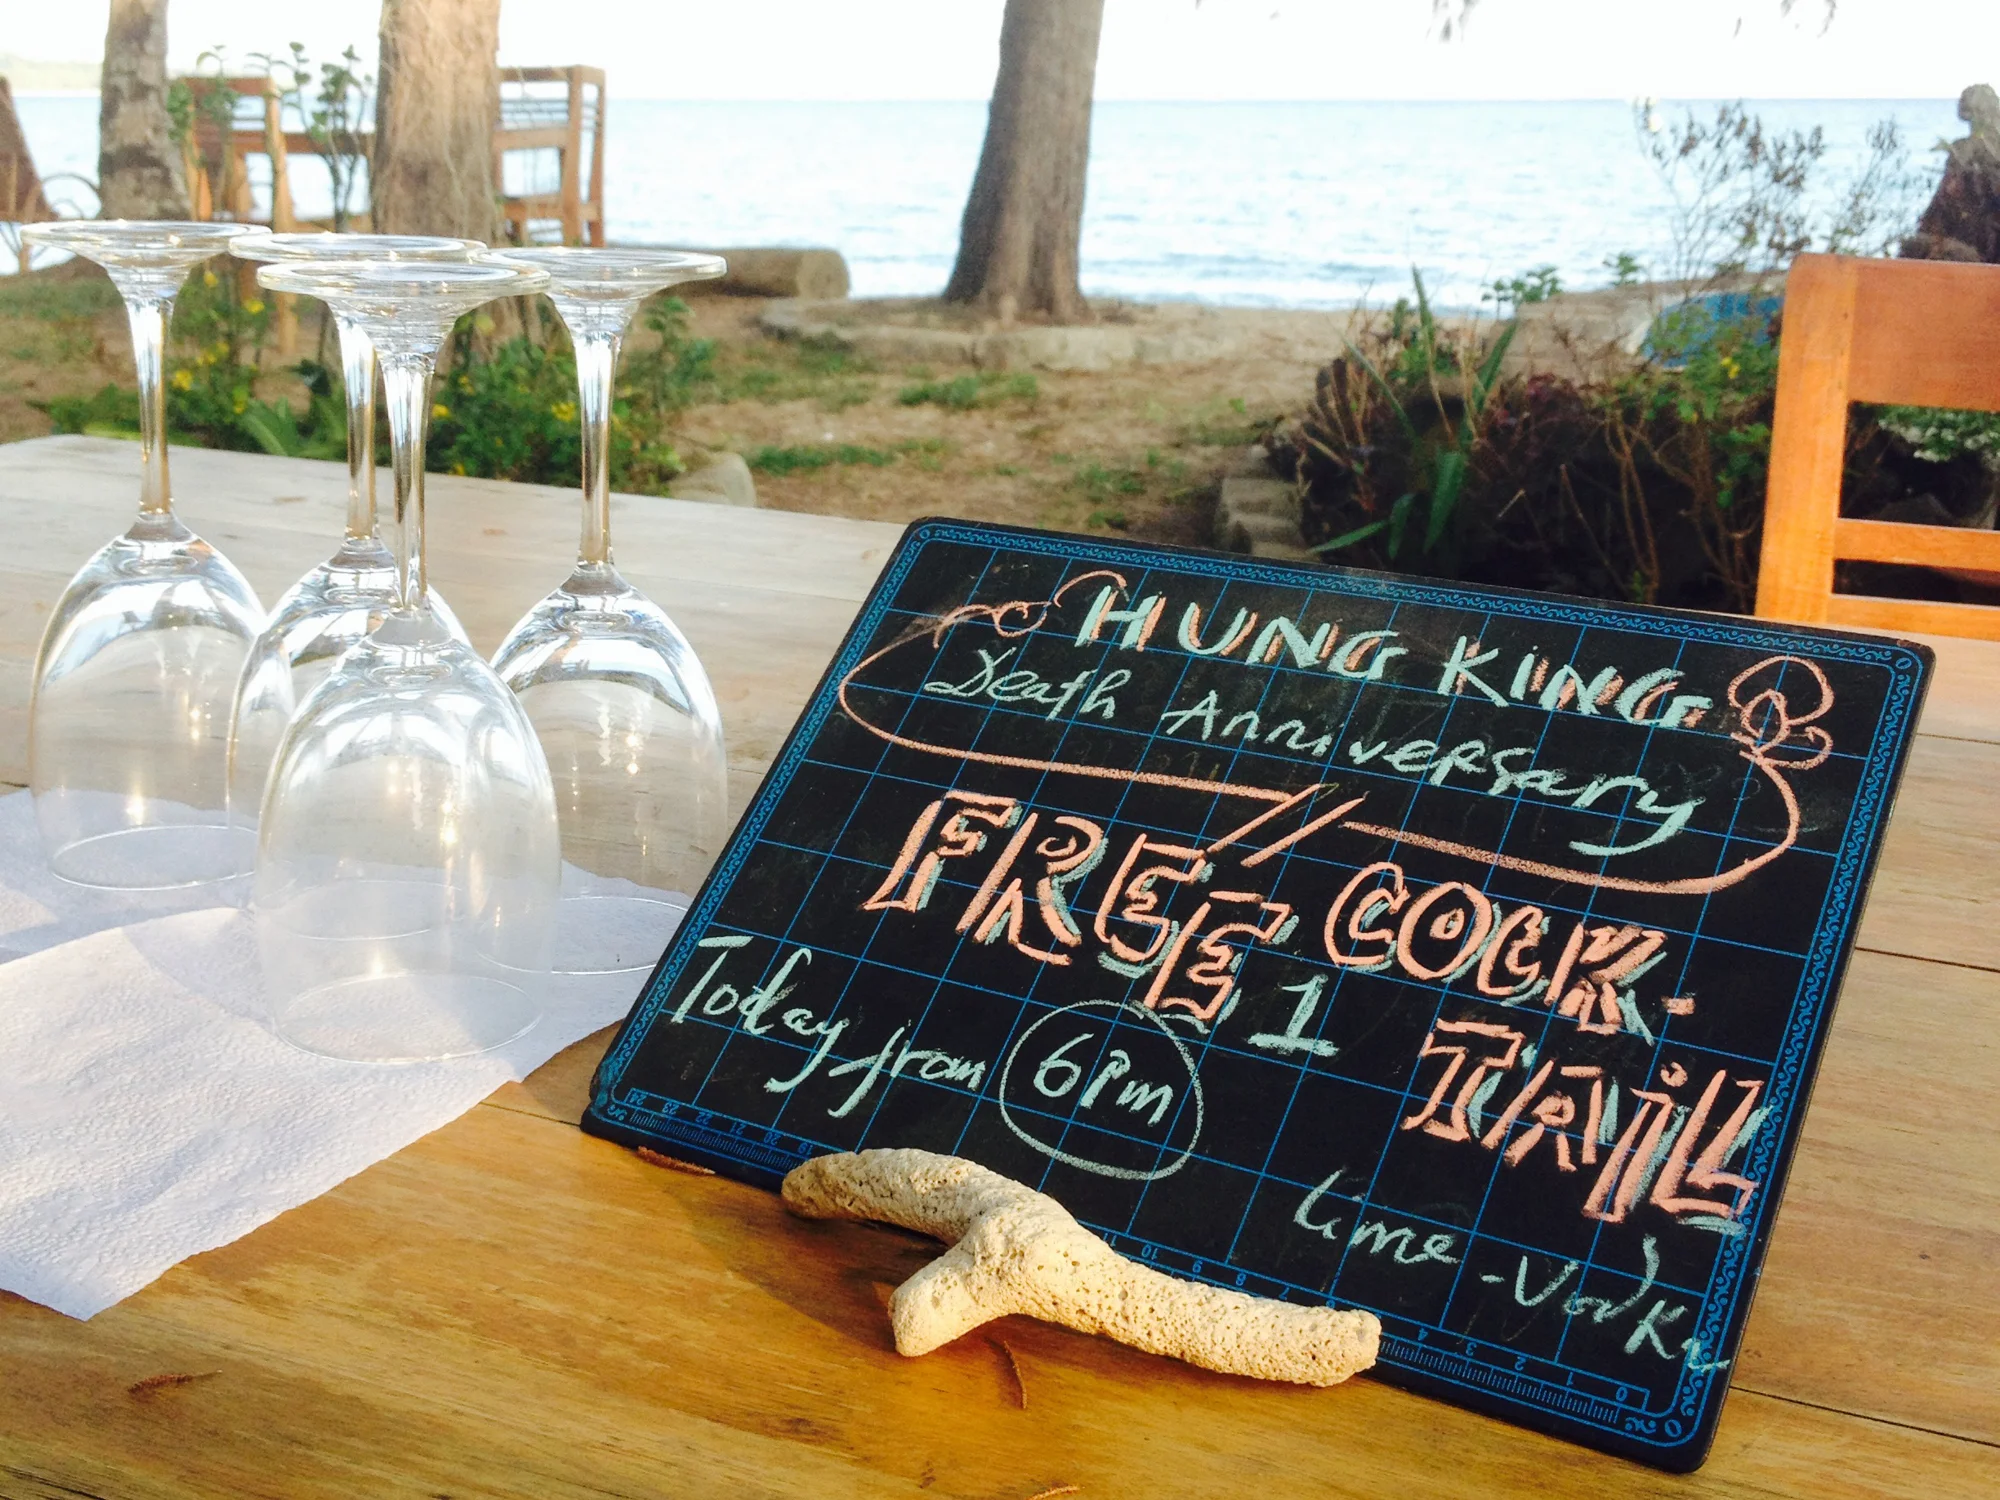 HUNG KiNG
Death Anniversary
FREE 1 COCK-
TAiL
Today from 6Pm
Lime-Vodka
24 23 22 21 20 19
11 10 9 8 7 4 3 2 1 0